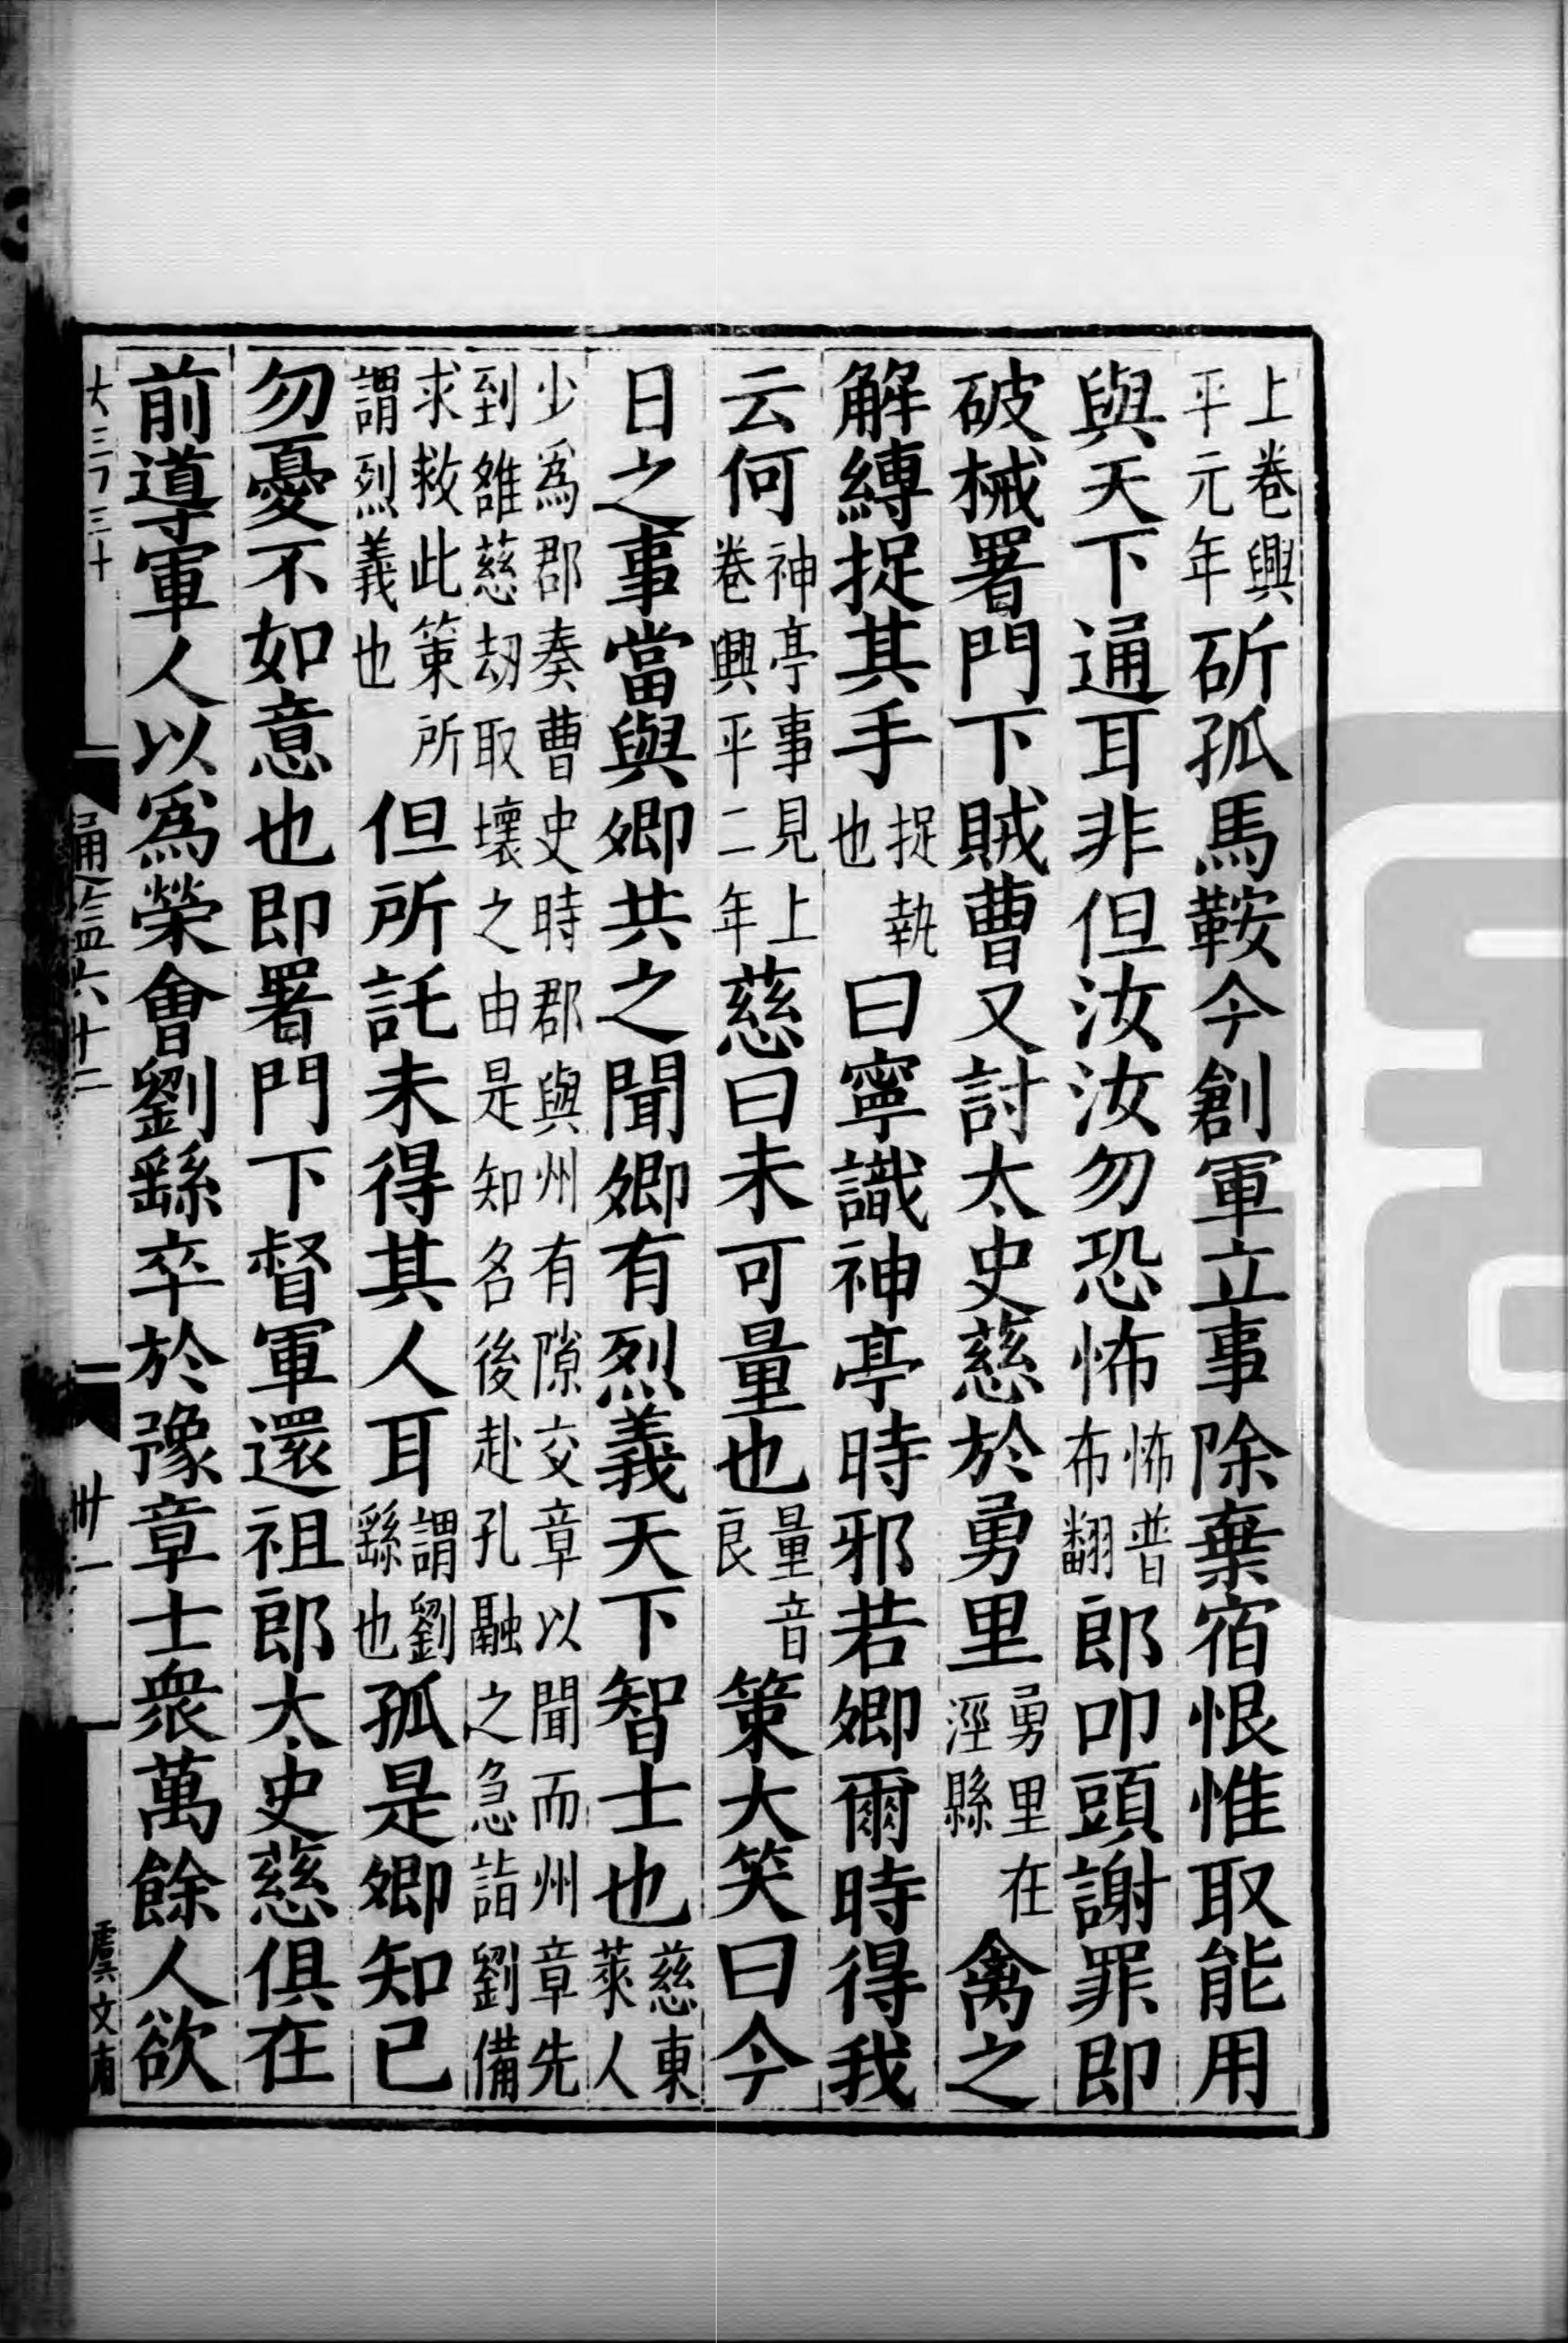 上卷興平元年斫孤馬鞍今創軍立事除棄宿恨惟取能用
與天下通耳非但汝汝勿恐怖怖普布翻郎叩頭謝罪即
破械署門下賊曹又討太史慈於勇里勇里在涇縣禽之
解縛捉其手捉執也曰寧識神亭時邪若卿爾時得我
云何神亭事見上卷興平二年慈曰未可量也量音良策大笑曰今
日之事當與卿共之聞卿有烈義天下智士也慈東萊人
少爲郡奏曹史時郡與州有隙交章以聞而州章先到雒慈劫取壞之由是知名後赴孔融之急詣劉備
求救此策所謂烈義也但所託未得其人耳謂劉繇也孤是卿知己
勿憂不如意也即署門下督軍還祖郎太史慈俱在
前導軍人以爲榮會劉繇卒於豫章士衆萬餘人欲
通鑑六十二
卅一